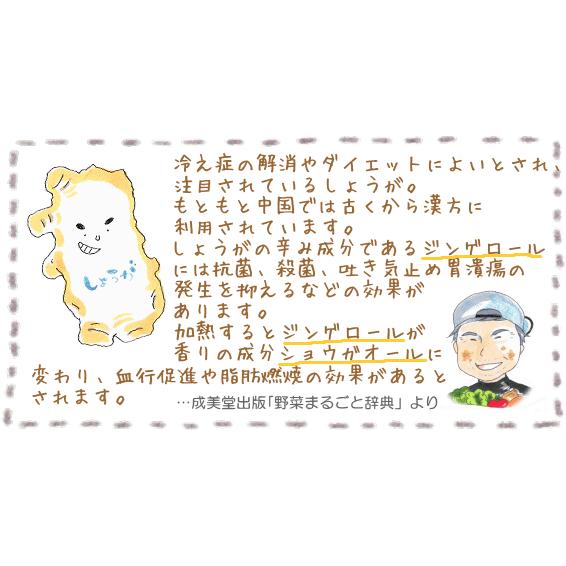 冷え症の解消やダイエットによいとされ、
注目されているしょうが。
もともと中国では古くから漢方に
利用されています。
しょうがの辛み成分であるジンゲロール
には抗菌、殺菌、吐き気止め胃潰瘍の
発生を抑えるなどの効果が
あります。
加熱するとジンゲロールが
香りの成分ショウガオールに
変わり、血行促進や脂肪燃焼の効果があると
されます。
…成美堂出版「野菜まるごと辞典」より
しょうが